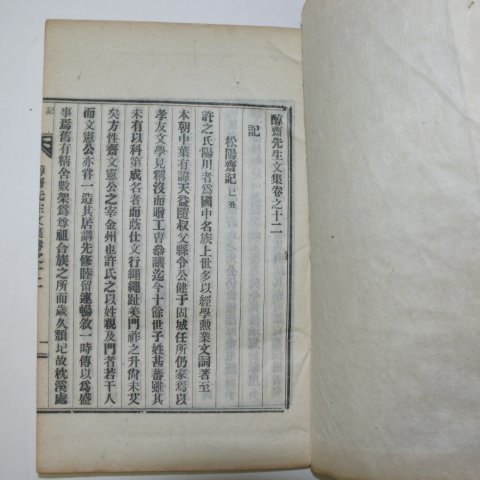 醇齋先生文集卷之十二
記
松陽齋記 己丑
許之氏陽川者爲國中名族上世多以經學勲業文詞著至
本朝中葉有諱天益隨叔父縣令公健于固城任所仍家焉以
孝友文學見稱沒而贈工曹叅議迄今十餘世子姓甚蕃雖其
未有以科第成名者而蔭仕文行繩繩趾美門祚之升尙未艾
矣方性齋文憲公之宰金州也許氏之以姓親及門者若干人
而文憲公亦嘗一造其居講先修睦留連暢敘一時傳以爲盛
事焉舊有精舍數架爲尊祖合族之所而歲久頹圮故枕溪處
記